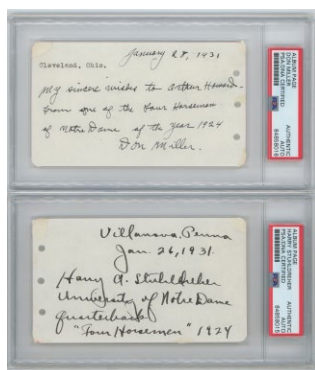 January 28, 1931
Cleveland, Ohio.
My sincere wishes to Arthur Howard.
from one of the Four Horsemen
of Notre Dame of the year 1924
Don Miller.
ALBUM PAGE
DON MILLER
PSA/DNA CERTIFIED
AUTHENTIC
AUTO
84858016
Villanova, Penna
Jan. 26, 1931.
Harry A. Stuhldreher
University of Notre Dame
quarterback
"Four Horsemen" 1924
ALBUM PAGE
HARRY STUHLDREHER
PSA/DNA CERTIFIED
AUTHENTIC
AUTO
84858015